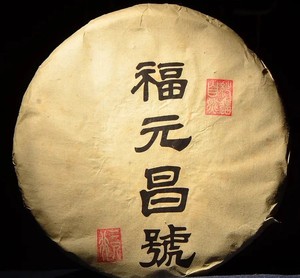 福元昌號